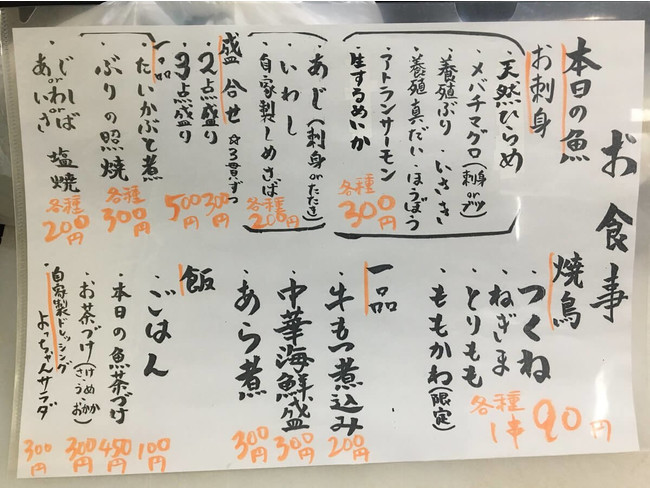 お食事
本日の魚
お刺身
・天然ひらめ
・メバチマグロ(刺身orブツ)
・養殖ぶり・いさき
・養殖真だい・ほうぼう
・アトランサーモン
・生するめいか
各種300円
・あじ(刺身orたたき)
・いわし
・自家製しめさば
各種200円
盛合せ ☆3貫ずつ
・2点盛り 300円
・3点盛り 500円
一品
・たいかぶと煮
・ぶりの照焼
各種300円
・じorわorば
あ い さ 塩焼
各種200円
焼鳥
・つくね
・ねぎま
・とりもも
・ももかわ(限定)
各種1串90円
一品
・牛もつ煮込み 200円
・中華海鮮盛 300円
・あら煮 300円
飯
・ごはん 100円
・本日の魚茶づけ 450円
・お茶づけ(さけ うめ おかか) 300円
・自家製ドレッシング
よっちゃんサラダ 300円